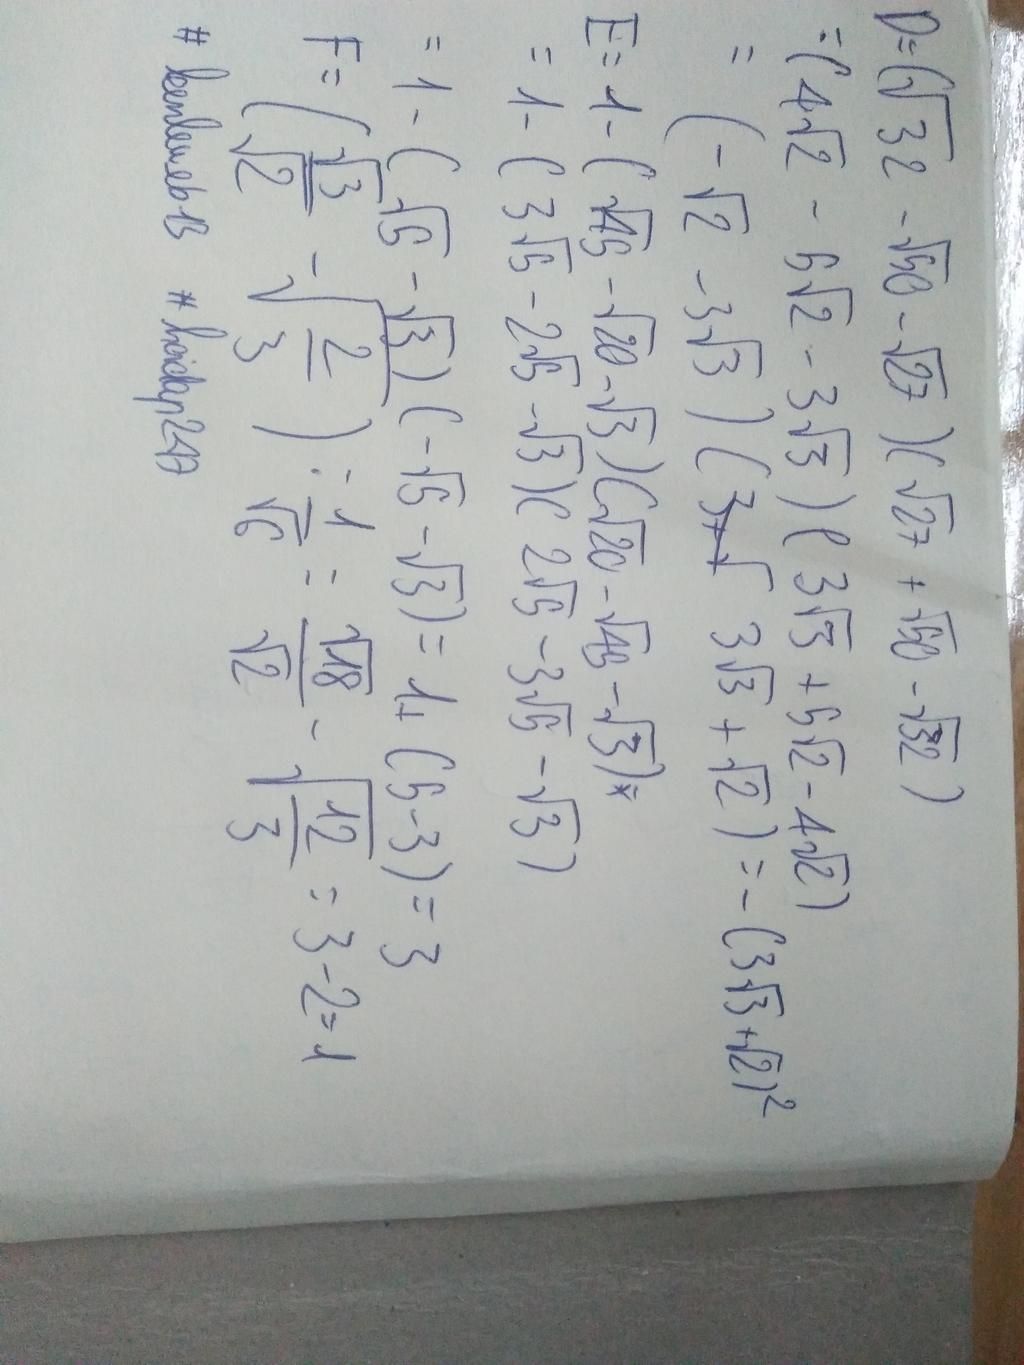 D=(√32 - √50 - √27)(√27 + √50 - √32)
=(4√2 - 5√2 - 3√3)(3√3 + 5√2 - 4√2)
= (-√2 - 3√3)(3√3 + √2) = -(3√3+√2)²
E= 1 - (√45 - √20 - √3)(√20 - √45 - √3)
= 1 - (3√5 - 2√5 - √3)(2√5 - 3√5 - √3)
= 1 - (√5 - √3)(-√5 - √3) = 1 + (5-3) = 3
F= (√3/√2 - √(2/3)) : 1/√6 = √18/√2 - √(12/3) = 3-2=1
# #hoidap247